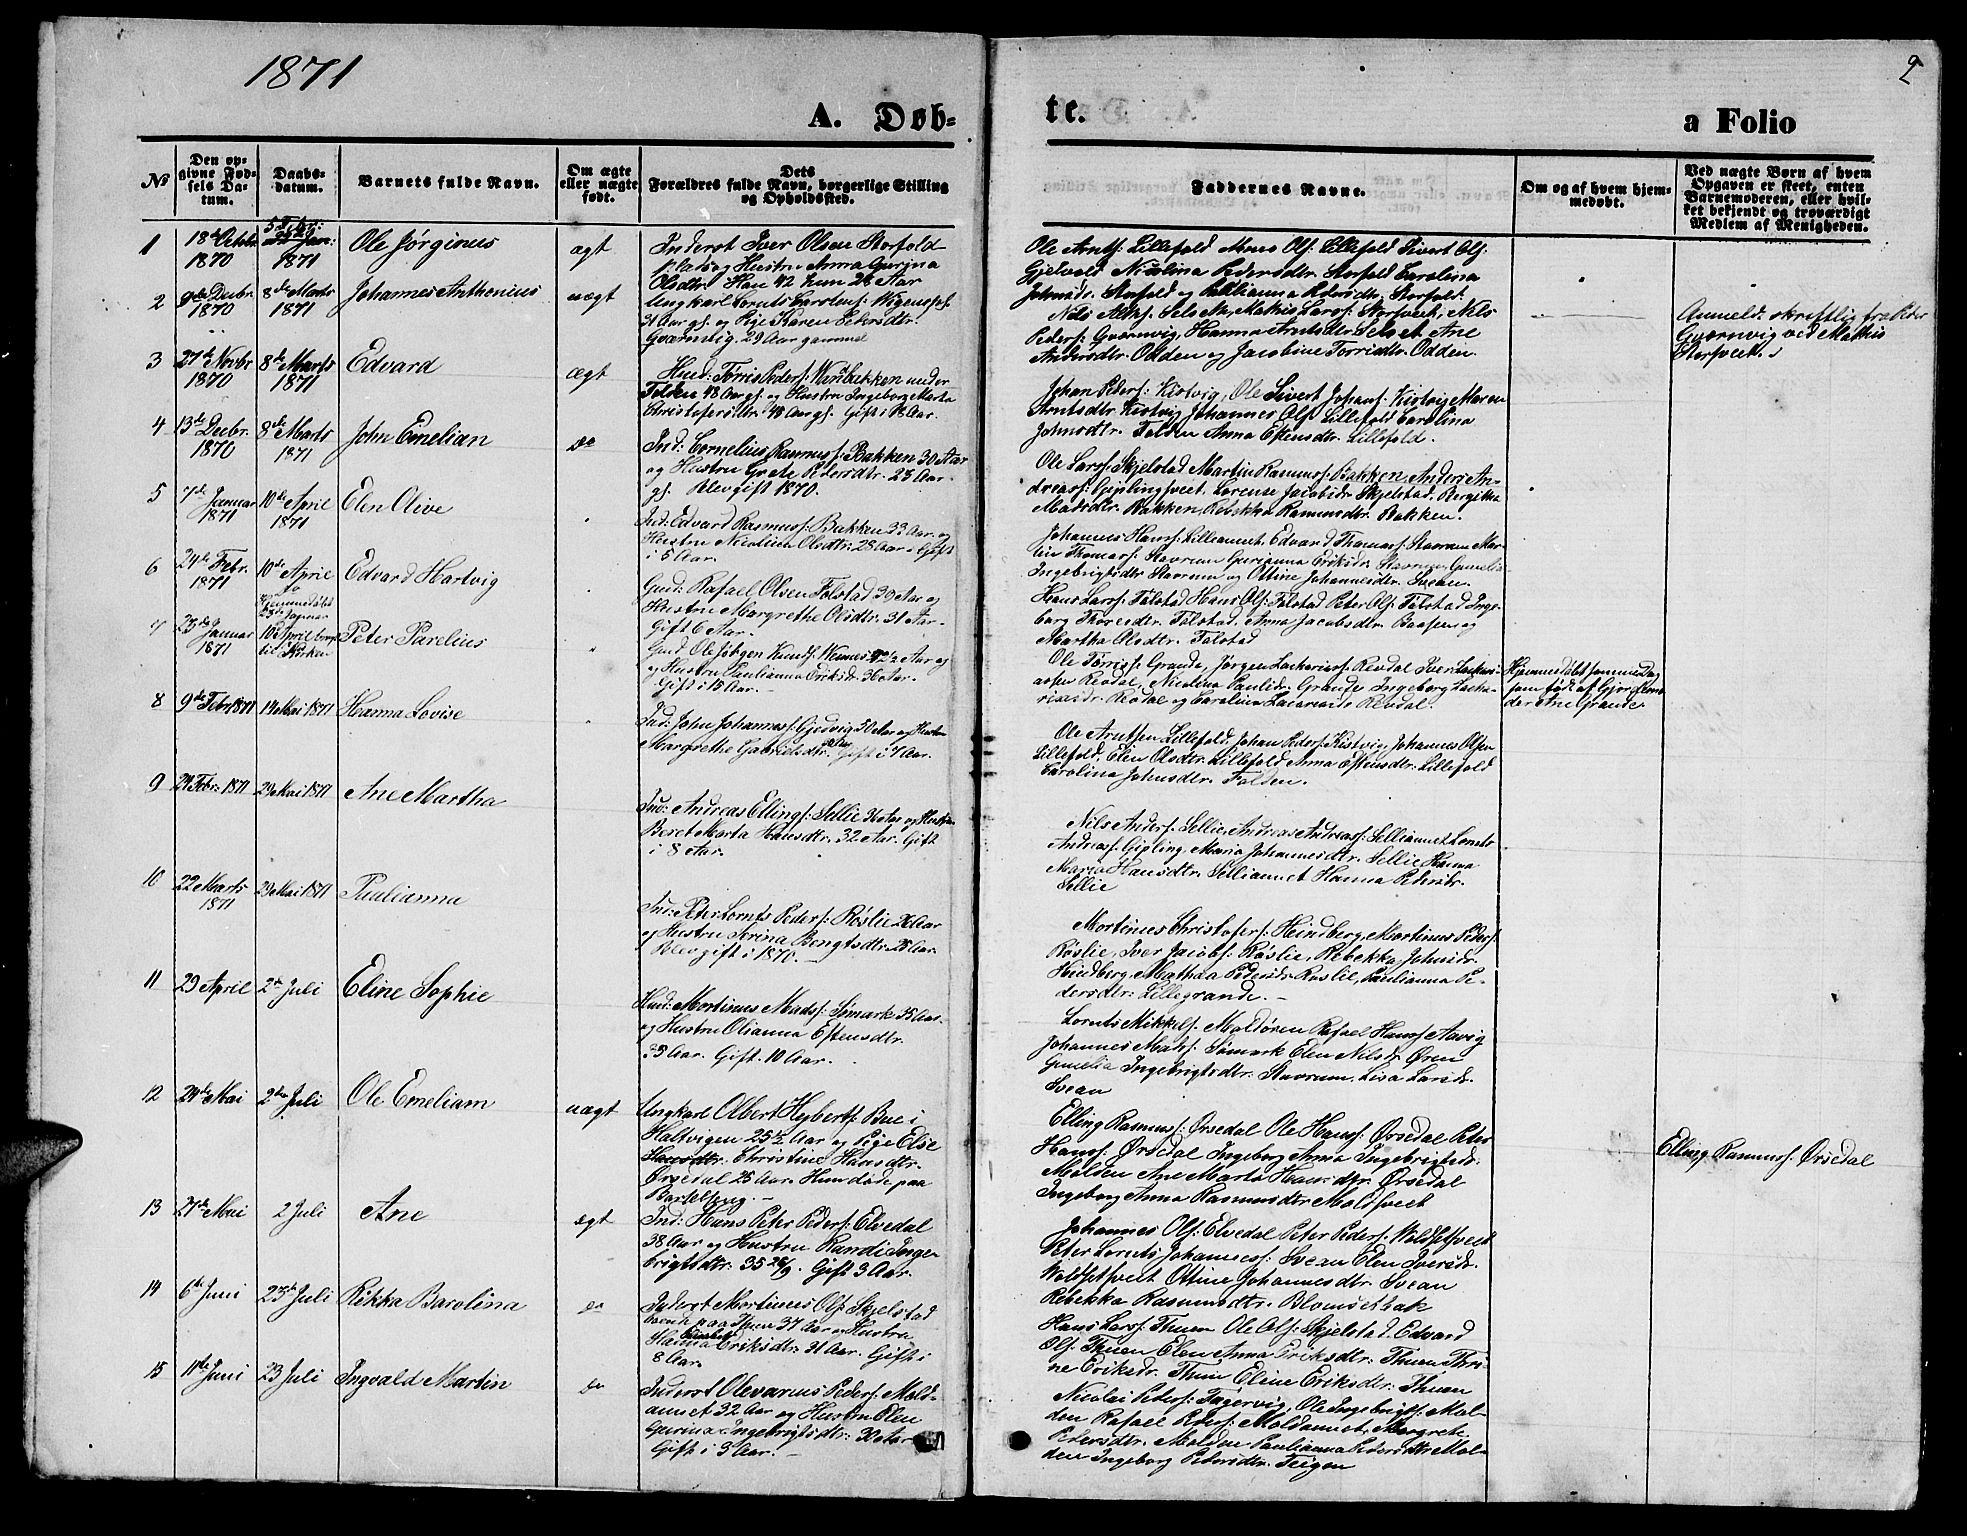 1871
2
A. Døb-
te.
a Folio
No
Den op-
givne Fød-
sels Da-
tum.
Daabs-
datum.
Barnets fulde Navn.
Om ægte
eller uægte
født.
Dets
Forældres fulde Navn, borgerlige Stilling
og Opholdssted.
Faddernes Navne.
Om og af hvem hjem-
medøbt.
Ved uægte Børn af hvem
Opgaven er skeet, enten
Barnemoderen, eller hvil-
ket bekjendt og troværdigt
Medlem af Menigheden.
1
18de Octbr
1870
1871
Ole Jørginus
ægt
Inderst Iver Olsen Storfold
plads og Hustru Anna Gurina
Olsdtr. Han 42 hun 28 Aar
Ole Arnts: Lillefold Mons Ols: Lillefold Sivert Ols:
Nicolina Pedersdtr. Storfold Carolina
Johnsdr. Storfold og Paulianna Pedersdtr. Storfold.
2
9de Decbr.
1870
8de Marts
1871
Johannes Anthonius
uægt
Ungkarl Lornts Carolius:
31 Aar gl. og Pige Karen Pedersdtr.
Qvernvig. 29 Aar gammel
Mathis Larss: Storsveet, Nils
Peders: Qvernvig, Hanna Ane
Andersdtr. Odden og Jacobine Torrisdtr. Odden.
Anmeld. skriftlig fra Peder
Qvernvig ved Mathis
Storsveet.
3
27de Novbr
1870
8de Marts
1871
Edvard
ægt
Huusd: Torris Peders: under
Folden 48 Aar gl. og Hustru Ingeborg Marta
Christofersdtr. 48 Aar gl. Gift i 18 Aar.
Johan Peders: Kistvig, Ole Sivert Johans: Kistvig Maren
Arntsdtr. Kistvig Johannes Ols: Lillefold Carolina
Johnsdtr. Folden Anna Estensdtr. Lillefold.
4
13de Decbr.
1870
8de Marts
1871
John Emelian
do
Ind: Cornelius Rasmus: Bakken 30 Aar
og Hustru Grete Pedersdtr. 25 Aar
gl. Blev gift 1870.
Ole Larss: Skjelstad Martin Rasmuss: Bakken, Anders An-
dreass: Giplingsveet. Lorense Jacobsdr. Skjelstad, Bergitha
Madsdtr. Bakken, Rebekka Rasmusdtr. Bakken.
5
7de Januar
1871
10de April
1871
Elen Olive
Ind: Edvard Rasmuss: Bakken 33 Aar og
Hustru Nicolina Olsdtr. 28 Aar. Gift
i 5 Aar.
Johannes Hans: Edvard Thomas: Stavrum Mar-
tin Thomas: Stavrum Gurianna Eriksdr. Stavrum Gunelia
Ingebrigtsdtr. Stavrum og Ottine Johannesdtr. Svean.
6
24de Febr.
1871
10de April
Edvard Hartvig
Gaard: Rafael Olsen Følstad 30 Aar og
Hustru Margrethe Olsdtr. 31 Aar
Gift 6 Aar.
Hans Larss: Følstad Hans Ols: Følstad Peter Ols: Følstad Inge-
borg Thoresdtr. Følstad. Anna Jacobsdtr. Baasen og
Martha Olsdtr. Følstad
7
23de Januar
1871
Hjemmedøbt
23de Januar
10de April bragt
til Kirken
Peter Parelius
Gaard: Ole Jørgen Knuds: Wennes 42½ Aar og
og Hustru Paulianna Eriksdr. 36 Aar.
Gift i 15 Aar.
Ole Torris: Grande, Jørgen Zachariass: Revdal Iver Zachari-
assen Revdal, Nicolina Paulsdr. Grande Ingeborg Zacha-
riasdr. Revdal og Carolina Revdal
Hjemmedøbt samme Dag
som født af Gjordemo-
der Ane Grande.
8
9de Febr 1871
14 Mai 1871
Hanna Lovise
Ind: John Johannes: Gjedvig 30 Aar og Hustru
Margrethe Gabrielsdtr. Gift i 7 Aar.
Ole Arntsen Lillefold, Johan Peders: Kistvig, Johannes Olsen
Lillefold, Elen Olsdtr. Lillefold Anna Estensdtr. Lillefold
Carolina Johnsdtr. Folden.
9
24 Febr: 1871
29 Mai 1871
Ane Martha
Ind: Andreas Ellings: Sellie 36 Aar og Hustru
Beret Marta Hansdtr. 32 Aar. Gift
i 8 Aar.
Nils Anders: Sellie, Andreas Andreas: Selliaunet Lornts
Andreass: Gipling, Maria Johannesdtr. Sellie Hanna
Maria Hansdtr. Selliaunet Hanna Pedersdtr.
Sellie
10
22 Marts
1871
29 Mai 1871
Paulianna
Ind: Peter Lornts Peders: Røslie 26 Aar
og Hustru Serina Bengtsdtr. 28 Aar
Blev gift i 1870.
Mortinus Christofers: Heindberg, Martinus Peders:
Røslie, Iver Jacobs: Røslie, Rebekka Johnsdr.
Heindberg, Mathea Pedersdr. Røslie, Paulianna Pe-
dersdtr: Lillegrande.
11
29 April
2de Juli
Eline Sophie
Huusd: Mortinus Mads: Sømark 35 Aar
og Hustru Olianna Estensdtr.
35 Aar. Gift. 10 Aar.
Lornts Mikkels: Moldøren Rafael Hanss: Aavig
Johannes Mads: Sømark Elen Nilsdr. Øren
Gunelia Ingebrigtsdtr: Stavrum, Lisa Larsdr.
Svean
12
24de Mai
2den Juli
Ole Emeliam
uægt
Ungkarl Olbert Hejberts: Bue i
Haltvigen 25½ Aar og Pige Else
Hansdtr. Christine Hansdtr.
Ørsedal 25 Aar. Hun døde paa
Barselseng.
Elling Rasmuss: Ørsedal Ole Hanss: Ørsedal Peter
Hanss: Ørsedal Ingeborg Anna Ingebrigtsdr.
Molden Ane Marta Hansdtr. Ørsedal
Ingeborg Anna Rasmusdtr Moldsveet
Elling Rasmuss: Ørsedal
13
27de Mai
2 Juli
Ane
ægt
Ind: Hans Peter Peders: Elvedal
38 Aar og Hustru Randi Inge-
brigtsdtr. 35 26/9. Gift 3 Aar.
Johannes Ols: Elvedal Peter Peders: Woldsetsveet
Peter Lornts Johannes: Svean Elen Iversdr.
Woldsetsveet Ottine Johannesdtr. Svean
Rebekka Rasmusdtr. Blomsetbak
14
6te Juni
23de Juli
Rikka Barolina
do
Inderst Mortinus Ols: Skjelstad
paa Thuen 37 Aar og Hustru
Hanna Eriksdtr. 31 Aar. Gift i
8 Aar.
Hans Larss: Thuen Ole Ols: Skjelstad, Edvard
Ols: Thuen Elen Anna Eriksdtr: Thuen Thri-
ne Eriksdr. Thuen Eline Eriksdtr: Thuen
15
11te Juni
23 Juli
Ingvald Martin
do
Inderst Olevarius Peders: Mold-
aunet 32 Aar og Hustru Elen
Gurina Ingebrigtsdtr: 30 Aar
Gift i 3 Aar.
Nicolai Peders: Fagervig, Ole Ingebrigts: Mol-
den Rafael Peders: Moldaunet, Margrete
Pedersdtr. Molden Paulianna Pedersdtr Mol-
den Ingeborg Pedersdtr. Teigen